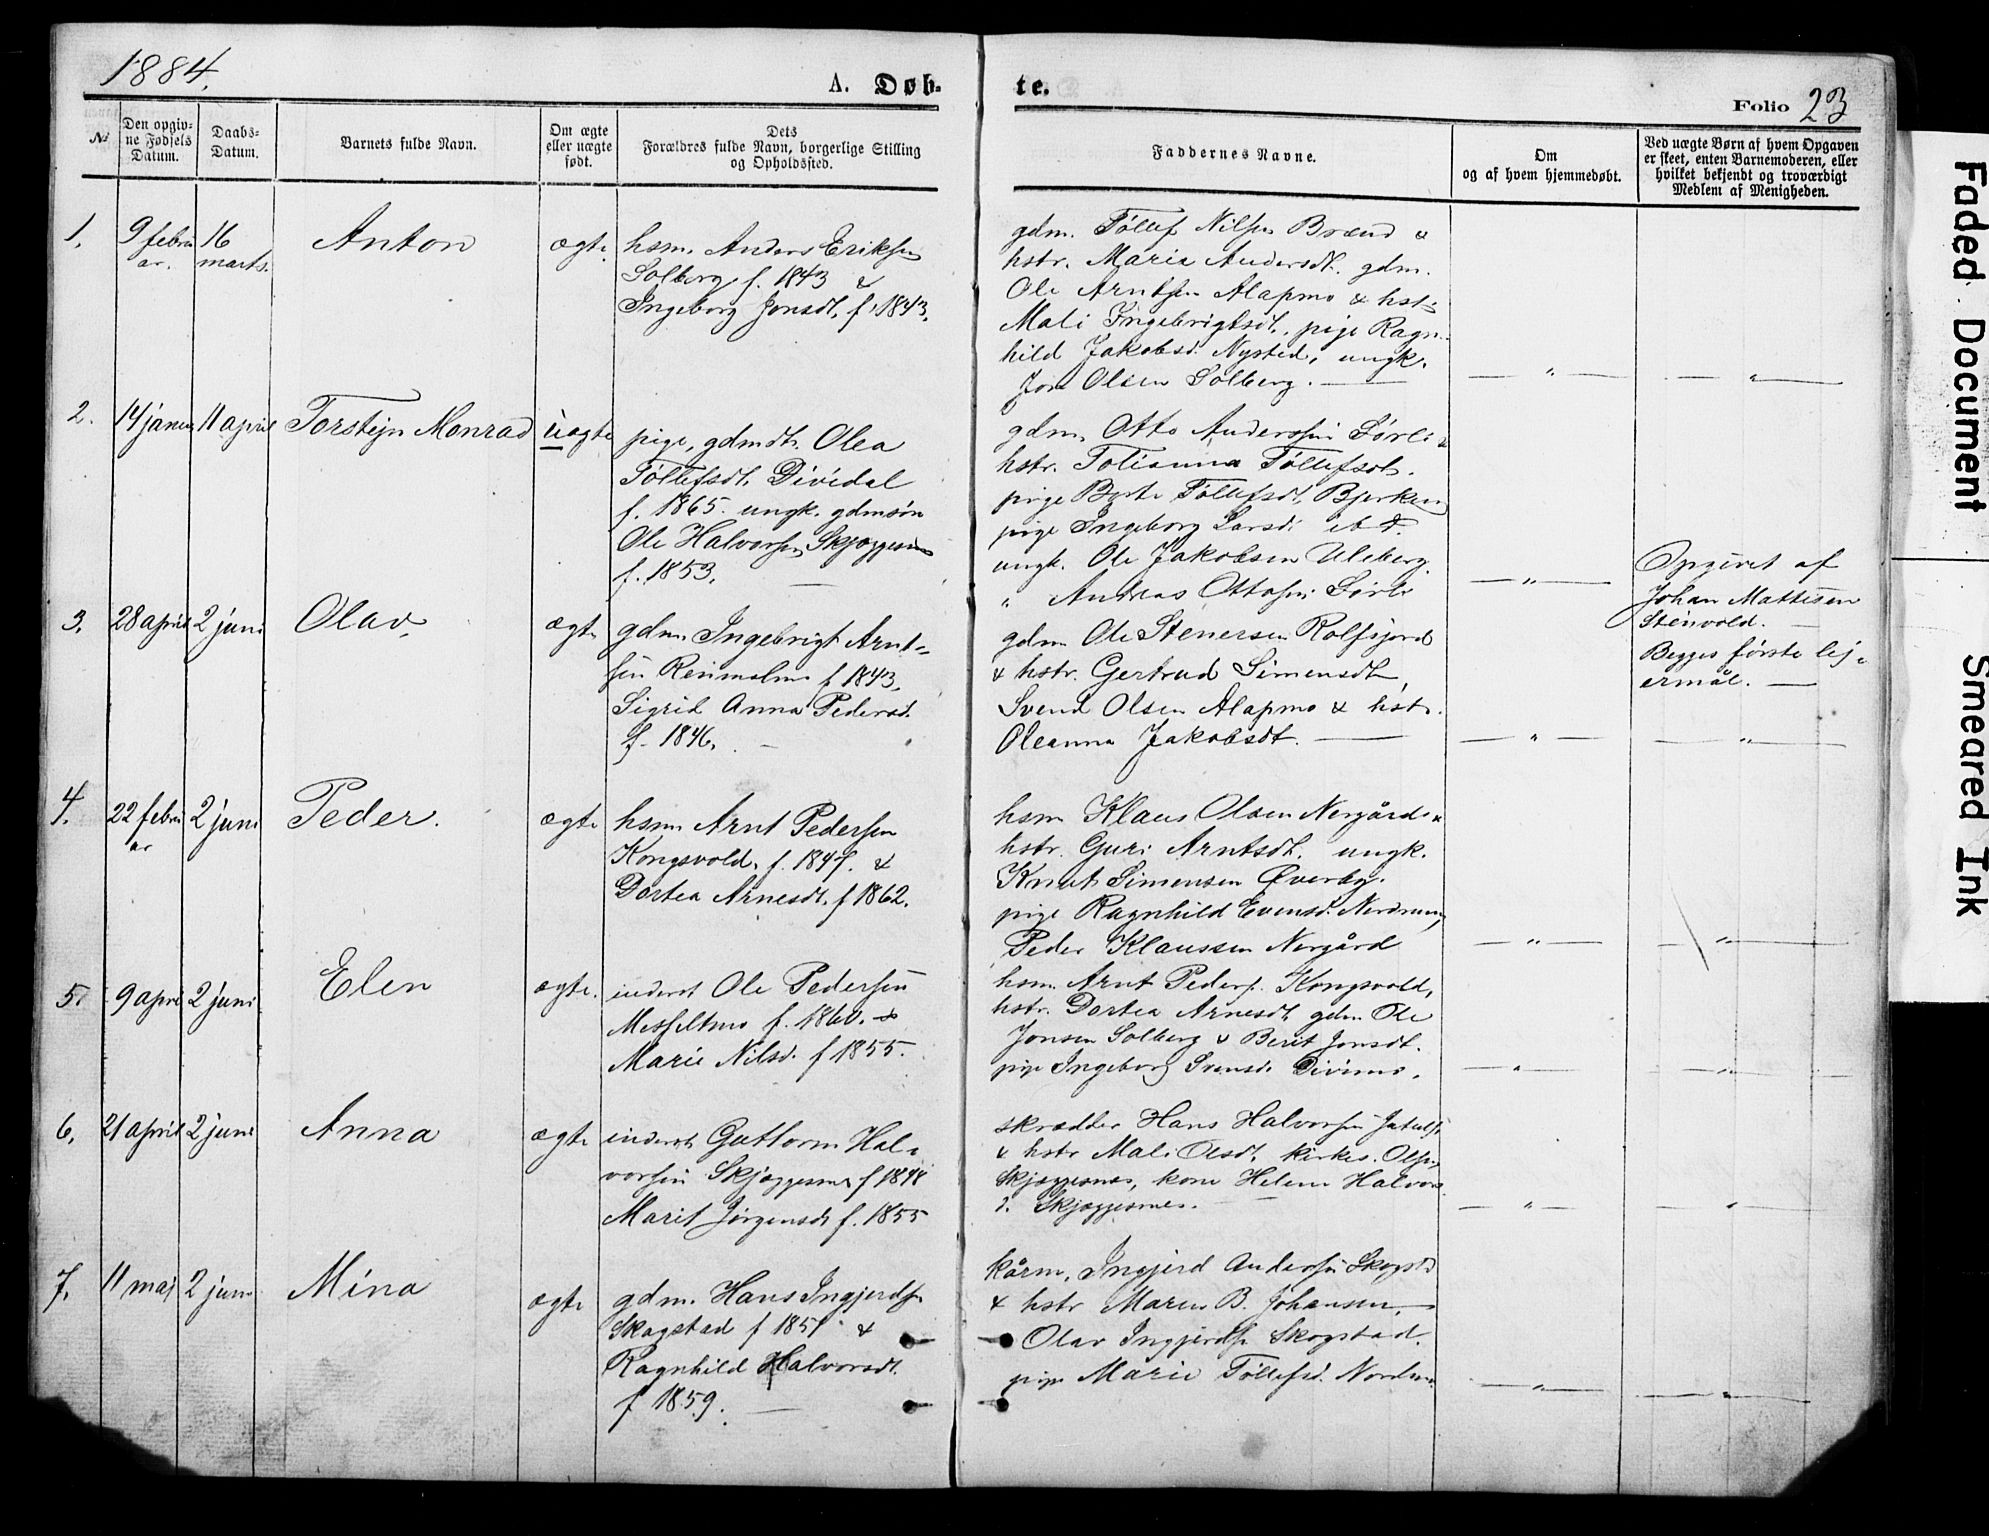 1884.
A. Døb-
te.
Folio 23
№
Den opgiv-
ne Fødsels
Datum.
Daabs-
Datum.
Barnets fulde Navn.
Om ægte
eller uægte
født.
Dets
Forældres fulde Navn, borgerlige Stilling
og Opholdssted.
Faddernes Navne.
Om
og af hvem hjemmedøbt.
Ved uægte Børn af hvem Opgaven
er skeet, enten Barnemoderen, eller
hvilket bekjendt og troværdigt
Medlem af Menigheden.
1.
9 febru
ar.
16
marts.
Anton
ægte.
hsm. Anders Eriksen
Solberg f. 1843 &
Ingeborg Jonsdt. f. 1843.
gdm. Tollef Nilsen Brænd &
hstr. Maria Andersdt. gdm.
Ole Arntsen Alapmo & hstr
Mali Ingebrigtsdt, pige Ragn-
hild Jakobsd. Nysted, ungk.
Jon Olsen Solberg. —
— " —
— " —
2.
14 januar
11 april
Torstejn Monrad
uægte
pige, gdmdt. Olea
Tollefsdt. Dividal
f. 1865. ungk. gdmsøn
Ole Halvorsen Skjæggesnes
f. 1853. —
gdm. Otto Anderssen Sørli &
hstr. Tolianna Tollefsdt.
pige Tollefsdt. Bjerkeng
pige Ingeborg Larsd.
ungk. Ole Jakobsen Uleberg.
" Andreas Ottosen Sørli
— " —
Opgivet af
Johan Mattisen
Stenvold. —
Begges første lej-
ermål. —
3.
28 april
2 juni
Olav.
ægte
gdm. Ingebrigt Arnt-
sen Reinmelmo f. 1843.
Sigrid Anna Pedersd.
f. 1846. —
gdm Ole Stenersen Rolfsjord
& hstr. Gertrud Simensdt
Svend Olsen Alapmo & hstr.
Oleanna Jakobsdt. —
— " —
— " —
4.
22 febru
ar
2 juni
Peder.
ægte
hsm Arnt Pedersen
Kongsvold. f. 1847. &
Dortea Arnesdt. f 1862.
hsm Klaus Olsen Nergård &
hstr. Guri Arntsdt. ungk.
Knut Simensen Øverby.
pige Ragnhild Evensd. Nordmo,
Peder Klaussen Nergård
— " —
— " —
5.
9 april
2 juni
Elen
ægte.
inderst Ole Pedersen
Messeltmo f. 1860. &
Marie Nilsd. f 1855.
hsm. Arnt Peders. Kongsvold,
hstr. Dortea Arnesdt. gdm Ole
Jonsen Solberg & Berit Jonsdt.
pige Ingeborg Svensd. Divimo.
— " —
— " —
6.
21 april
2 juni
Anna
ægte
inderst Guttorm Hal-
vorsen Skjæggesnes f 1848
Marit Jørgensdt f. 1855
skrædder Hans Halvorsen
& hstr Mali Olsdt. kirkes. Olsen
Skjæggesnes, kone Helene Halvors-
d. Skjæggesnes.
— " —
— " —
7.
11 maj
2 juni
Mina
ægte
gdm. Hans Ingjerds.
Skogstad f 1851 &
Ragnhild Halvorsdt.
f 1859. —
kårm. Ingjerd Andersen Skogstd
& hstr Maren B. Johansen. —
Olav Ingjerds. Skogstad.
pige Marie Tollefsd. Nordmo.
— " —
— " —
Faded Document
Smeared Ink